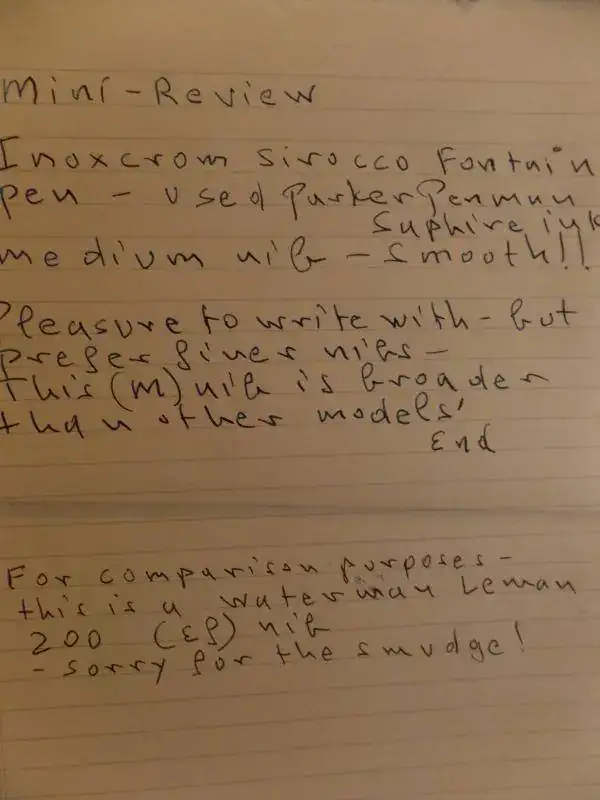 Mini-Review
Inoxcrom Sirocco Fontain
pen - used Parker Penman
Saphire ink
medium nib - smooth!!
Pleasure to write with - but
prefer finer nibs -
This (m) nib is broader
than other models'
End
For comparison purposes -
this is a Waterman Leman
200 (EF) nib
- sorry for the smudge!